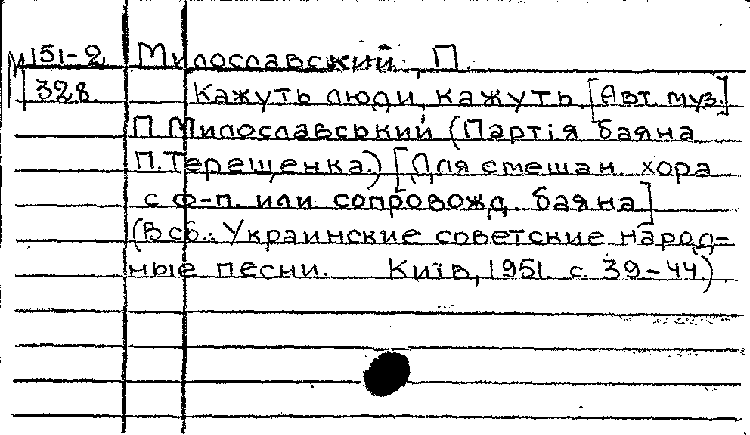 М 151-2 Милославский, П.
328 Кажуть люди, кажуть [Авт. муз.]
П. Милославський (Партія баяна
П. Терещенка.) [Для смешан. хора
с ф-п. или сопровожд. баяна]
(В сб.: Украинские советские народ-
ные песни. Київ, 1951. с. 39-44)